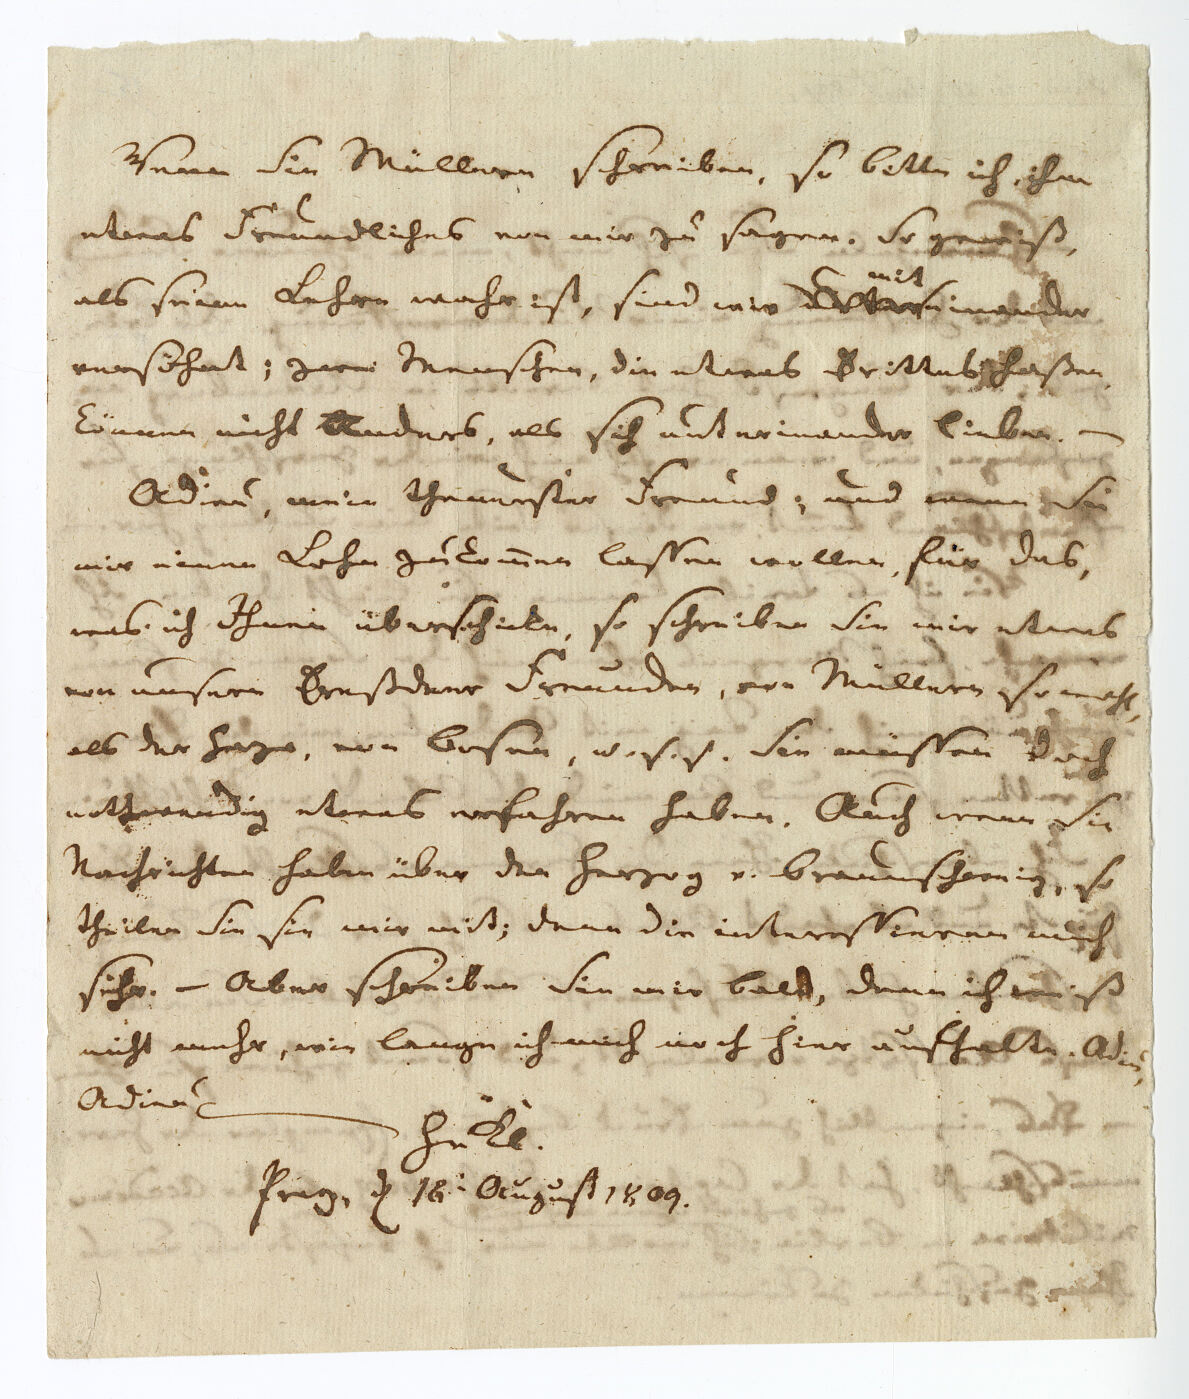 Wenn Sie Müllern schreiben, so bitte ich, ihm
etwas Freundliches von mir zu sagen. So gewiß,
als seine Lehre wahr ist, sind wir mit einander
versöhnt; zwei Menschen, die etwas Drittes haßen,
können nicht anders, als sich untereinander lieben. –
Adieu, mein theuerster Freund; und wenn Sie
mir einen Lohn zukom̅en lassen wollen, für das,
was ich Ihnen überschicke, so schreiben Sie mir etwas
von unsern Dreßdner Freunden, von Müllern so wohl,
als der Haza, von Bosen, u. s. f. Sie müssen doch
nothwendig etwas erfahren haben. Auch wenn Sie
Nachrichten haben über den Herzog v. Braunschweig, so
theilen Sie sie mir mit; denn die interessieren mich
sehr. – Aber schreiben Sie mir bald, denn ich weiß
nicht mehr, wie lange ich mich noch hier aufhalte. Adieu,
Adieu
H. v. Kl.
Prag, d 18t August 1809.